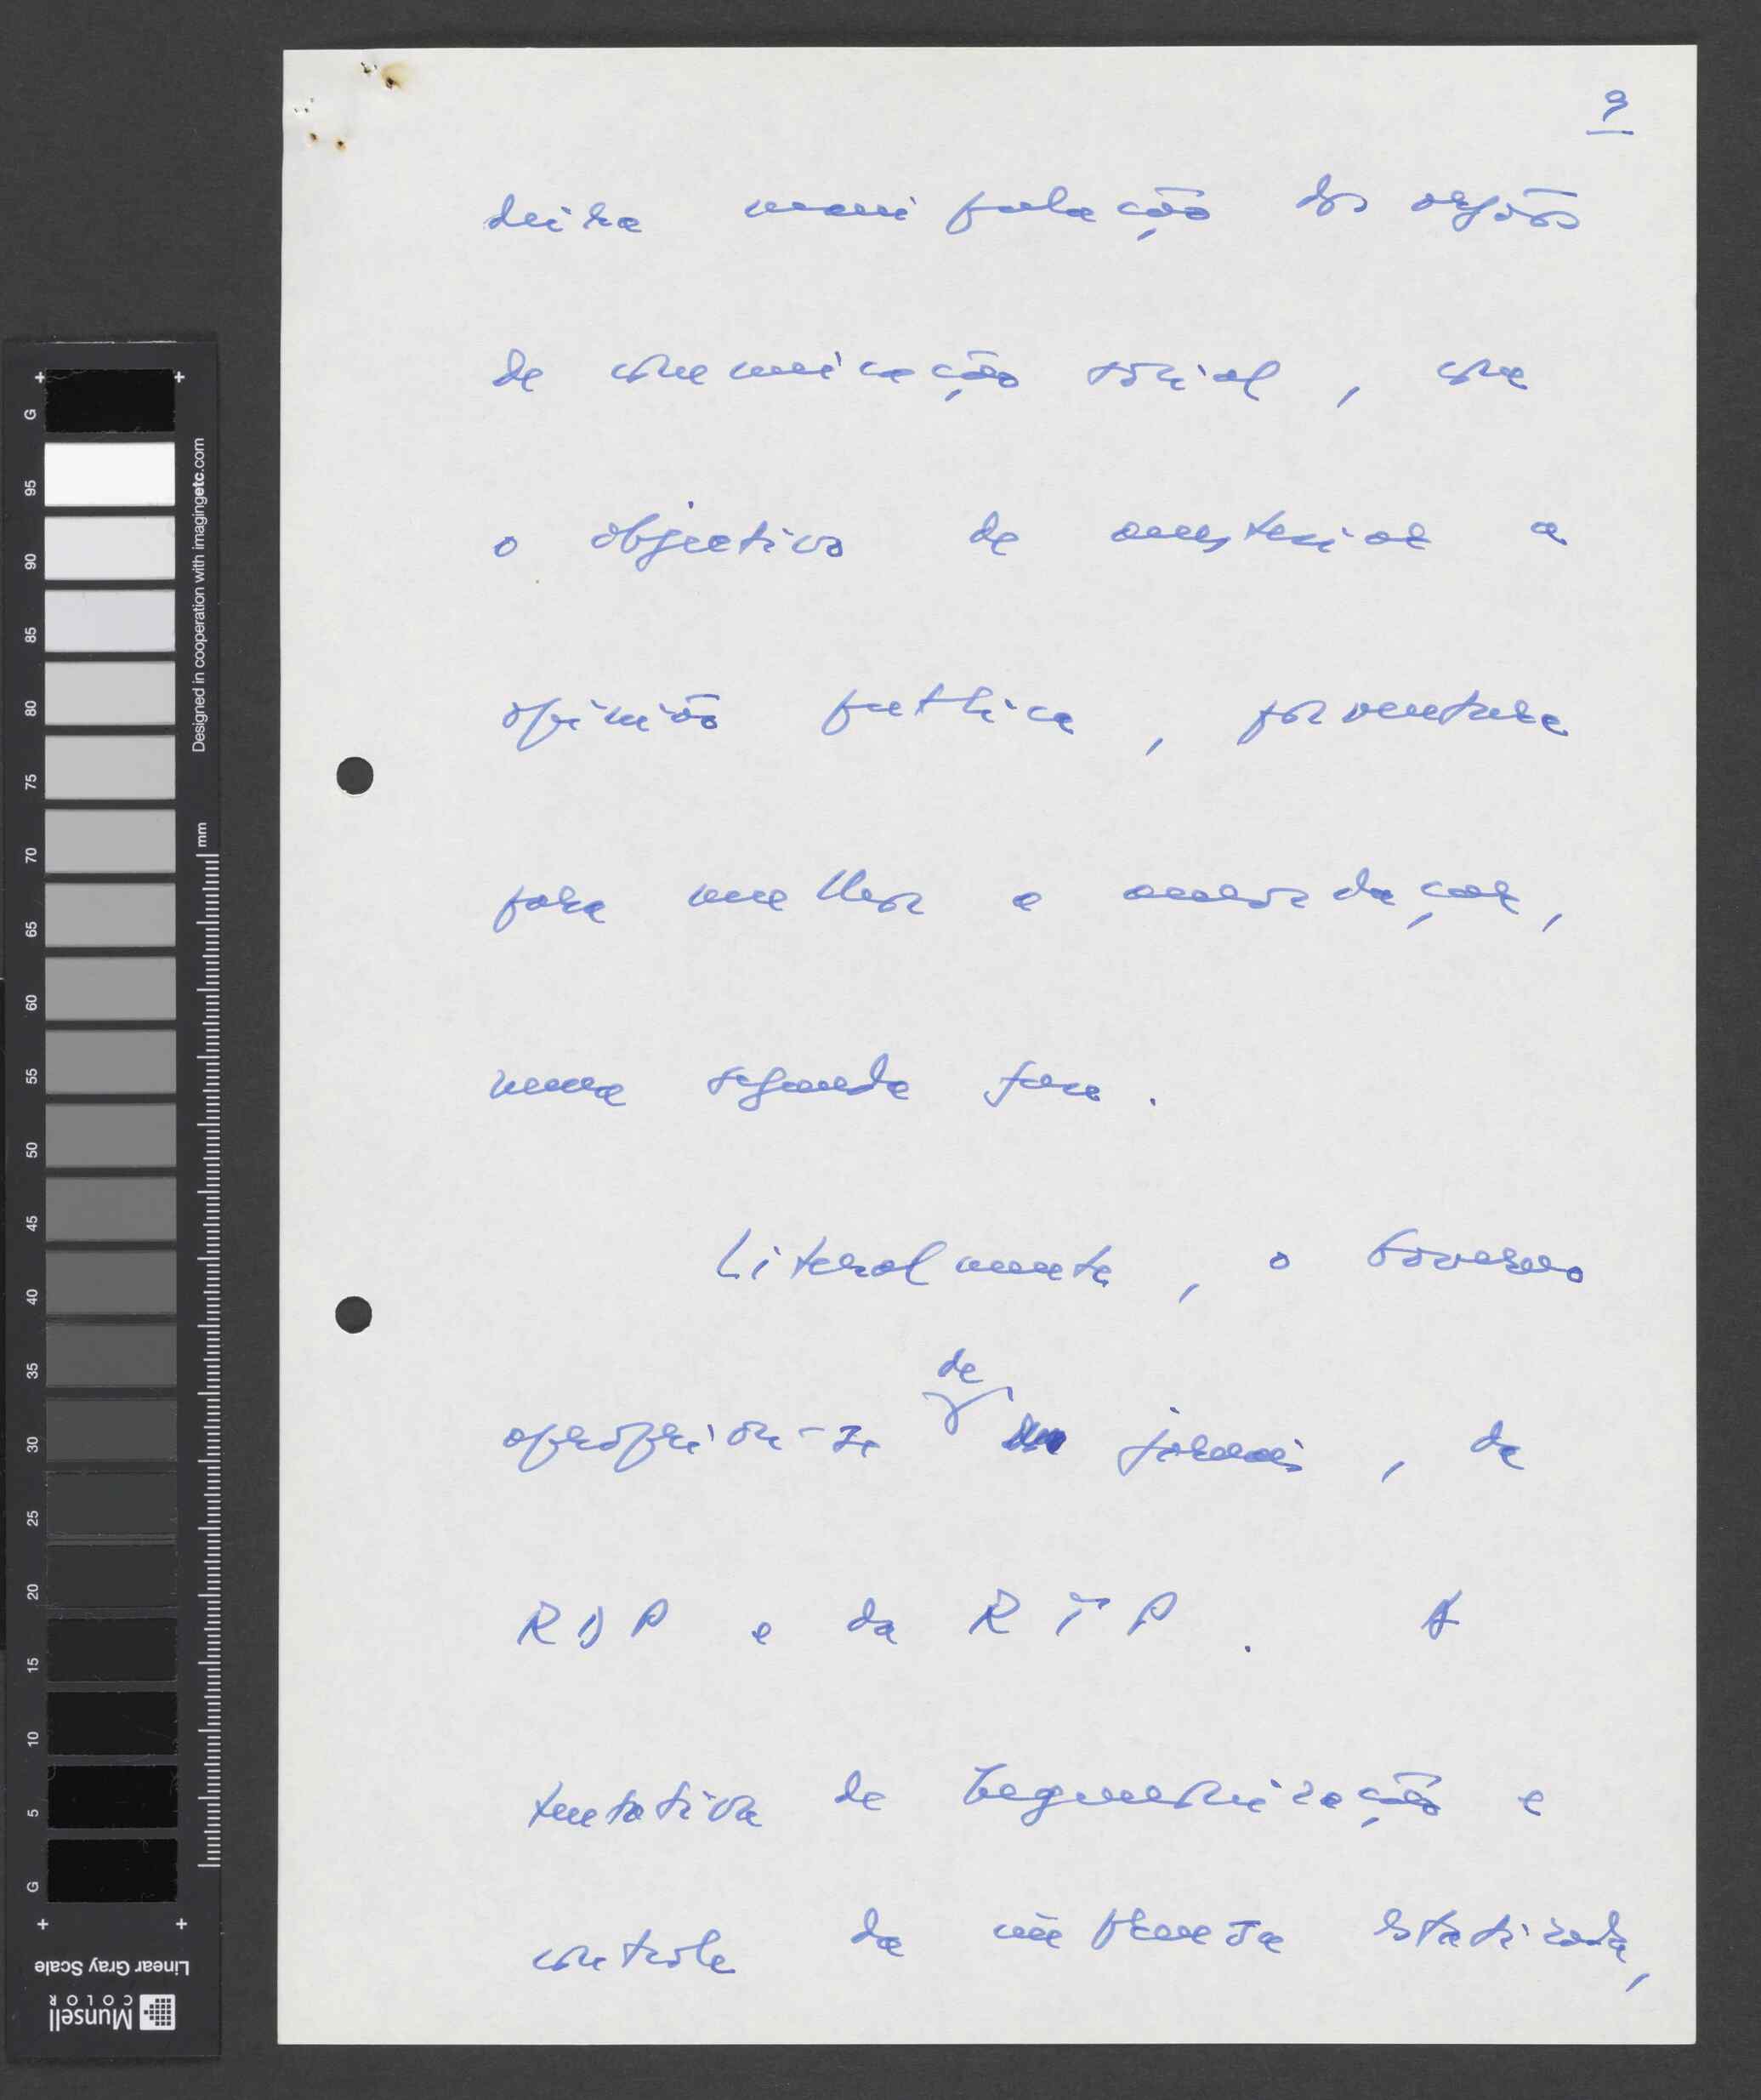 9
deira manipulação dos orgãos
de comunicação social, com
o objectivo de anestesiar a
opinião publica, porventura
para melhor a amordaçar,
numa segunda fase.
Literalmente, o Governo
apropriou-se de jornais, da
RDP e da RTP. A
tentativa de hegemonização e
controle da imprensa estatizada,
G
95
90
85
80
75
70
65
60
55
50
45
40
35
30
25
20
15
10
5
G
Designed in cooperation with imagingetc.com
mm
Linear Gray Scale
Munsell
COLOR